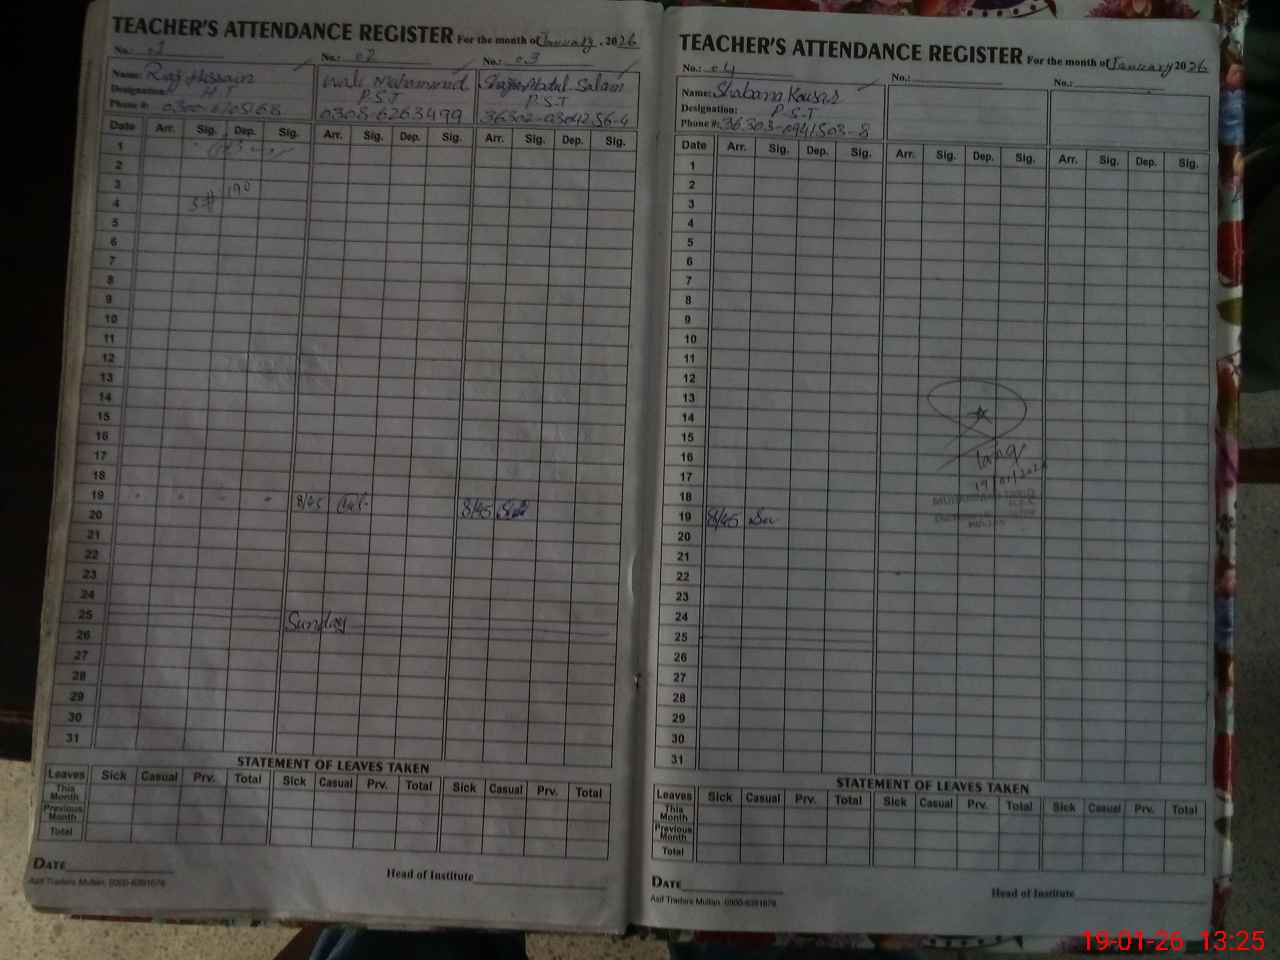 TEACHER'S ATTENDANCE REGISTER For the month of January, 2026
No.: 01 No.: 02 No.: 03
Name: Riaz Hussain Wali Muhammad Abdul Salam
Designation: H.T P.S.T P.S.T
Phone #: 0305-6263499
Date Arr. Sig. Dep. Sig. Arr. Sig. Dep. Sig. Arr. Sig. Dep. Sig.
1
2
3
4
5
6
7
8
9
10
11
12
13
14
15
16
17
18
19 8/45 8/45
20
21
22
23
24
25 Sunday
26
27
28
29
30
31
STATEMENT OF LEAVES TAKEN
Leaves Sick Casual Prv. Total Sick Casual Prv. Total Sick Casual Prv. Total
This Month
Previous Month
Total
DATE
Head of Institute
Asif Traders Multan. 0300-6391676
TEACHER'S ATTENDANCE REGISTER For the month of January 2026
No.: 04 No.: No.:
Name: Shabana Kousar
Designation: P.S.T
Phone #: 36303-0941503-8
Date Arr. Sig. Dep. Sig. Arr. Sig. Dep. Sig. Arr. Sig. Dep. Sig.
1
2
3
4
5
6
7
8
9
10
11
12
13
14
15
16
17
18
19 8/45
20
21
22
23
24
25
26
27
28
29
30
31
STATEMENT OF LEAVES TAKEN
Leaves Sick Casual Prv. Total Sick Casual Prv. Total Sick Casual Prv. Total
This Month
Previous Month
Total
DATE
Head of Institute
Asif Traders Multan. 0300-6391676
19-01-26 13:25